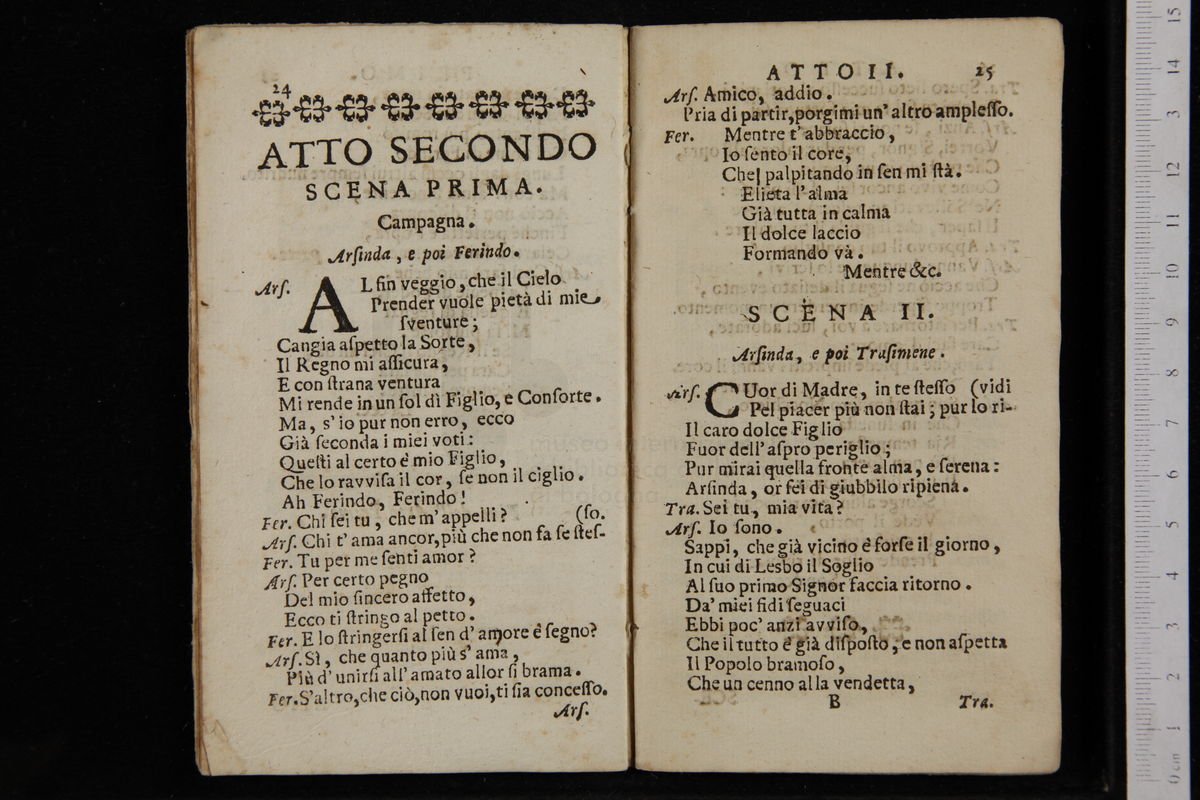 24
ATTO SECONDO
SCENA PRIMA.
Campagna.
Arſinda, e poi Ferindo.
Arſ. AL fin veggio, che il Cielo
Prender vuole pietà di mie
ſventure;
Cangia aſpetto la Sorte,
Il Regno mi aſſicura,
E con ſtrana ventura
Mi rende in un ſol dì Figlio, e Conſorte.
Ma, s' io pur non erro, ecco
Già ſeconda i miei voti:
Queſti al certo è mio Figlio,
Che lo ravviſa il cor, ſe non il ciglio.
Ah Ferindo, Ferindo!
Fer. Chi ſei tu, che m' appelli? (ſo.
Arſ. Chi t' ama ancor, più che non fa ſe ſteſ-
Fer. Tu per me ſenti amor?
Arſ. Per certo pegno
Del mio ſincero affetto,
Ecco ti ſtringo al petto.
Fer. E lo ſtringerſi al ſen d' amore è ſegno?
Arſ. Sì, che quanto più s' ama,
Più d' unirſi all' amato allor ſi brama.
Fer. S'altro, che ciò, non vuoi, ti ſia conceſſo.
Arſ.
ATTO II. 25
Arſ. Amico, addio.
Pria di partir, porgimi un' altro ampleſſo.
Fer. Mentre t' abbraccio,
Io ſento il core,
Che palpitando in ſen mi ſtà.
E lieta l' alma
Già tutta in calma
Il dolce laccio
Formando và.
Mentre &c.
SCENA II.
Arſinda, e poi Traſimene.
Arſ. CUor di Madre, in te ſteſſo (vidi
Pel piacer più non ſtai; pur lo ri-
Il caro dolce Figlio
Fuor dell' aſpro periglio;
Pur mirai quella fronte alma, e ſerena:
Arſinda, or ſei di giubbilo ripiena.
Tra. Sei tu, mia vita?
Arſ. Io ſono.
Sappi, che già vicino è forſe il giorno,
In cui di Lesbo il Soglio
Al ſuo primo Signor faccia ritorno.
Da' miei fidi ſeguaci
Ebbi poc' anzi avviſo,
Che il tutto è già diſpoſto, e non aſpetta
Il Popolo bramoſo,
Che un cenno alla vendetta,
B Tra.